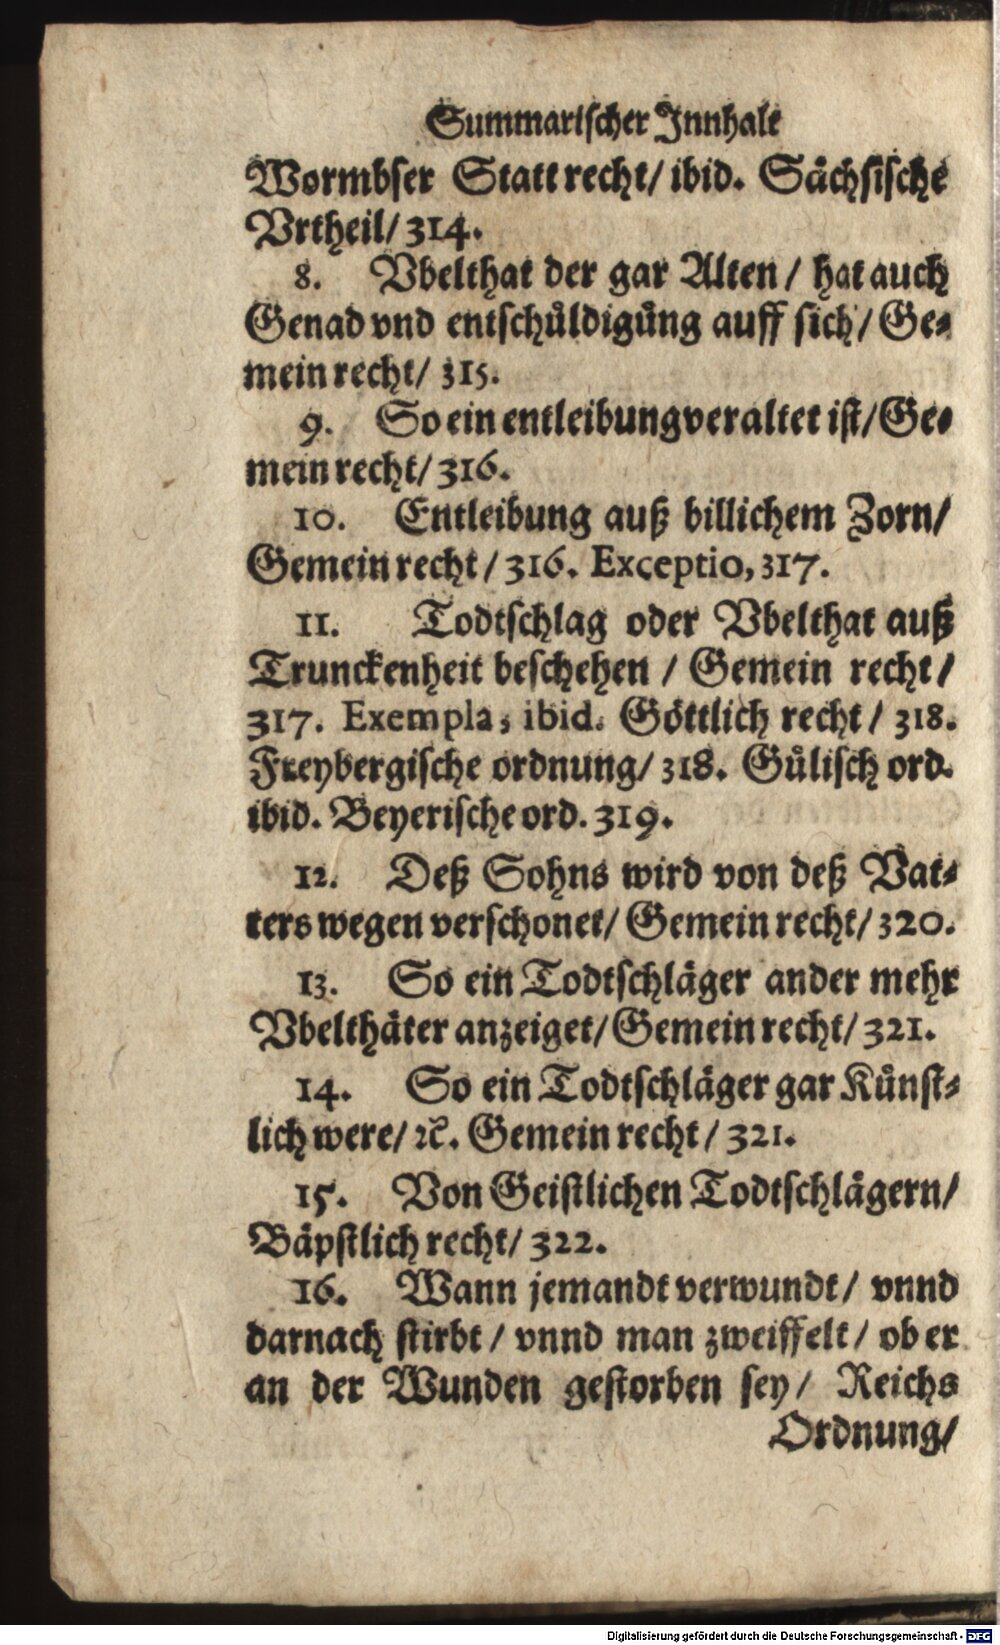 Summarischer Innhalt
Wormbser Statt recht/ ibid. Sächsische
Vrtheil/ 314.
8. Vbelthat der gar Alten / hat auch
Genad vnd entschůldigůng auff sich/ Ge-
mein recht/ 315.
9. So ein entleibung veraltet ist/ Ge-
mein recht/ 316.
10. Entleibung auß billichem Zorn/
Gemein recht / 316. Exceptio, 317.
11. Todtschlag oder Vbelthat auß
Trunckenheit beschehen / Gemein recht/
317. Exempla, ibid. Göttlich recht / 318.
Freybergische ordnung/ 318. Gůlisch ord.
ibid. Beyerische ord. 319.
12. Deß Sohns wird von deß Vat-
ters wegen verschonet/ Gemein recht/ 320.
13. So ein Todtschläger ander mehr
Vbelthäter anzeiget/ Gemein recht/ 321.
14. So ein Todtschläger gar Kůnst-
lich were/ ꝛc. Gemein recht / 321.
15. Von Geistlichen Todtschlägern/
Bäpstlich recht/ 322.
16. Wann jemandt verwundt/ vnnd
darnach stirbt / vnnd man zweiffelt/ ob er
an der Wunden gestorben sey/ Reichs
Ordnung/
Digitalisierung gefördert durch die Deutsche Forschungsgemeinschaft - DFG